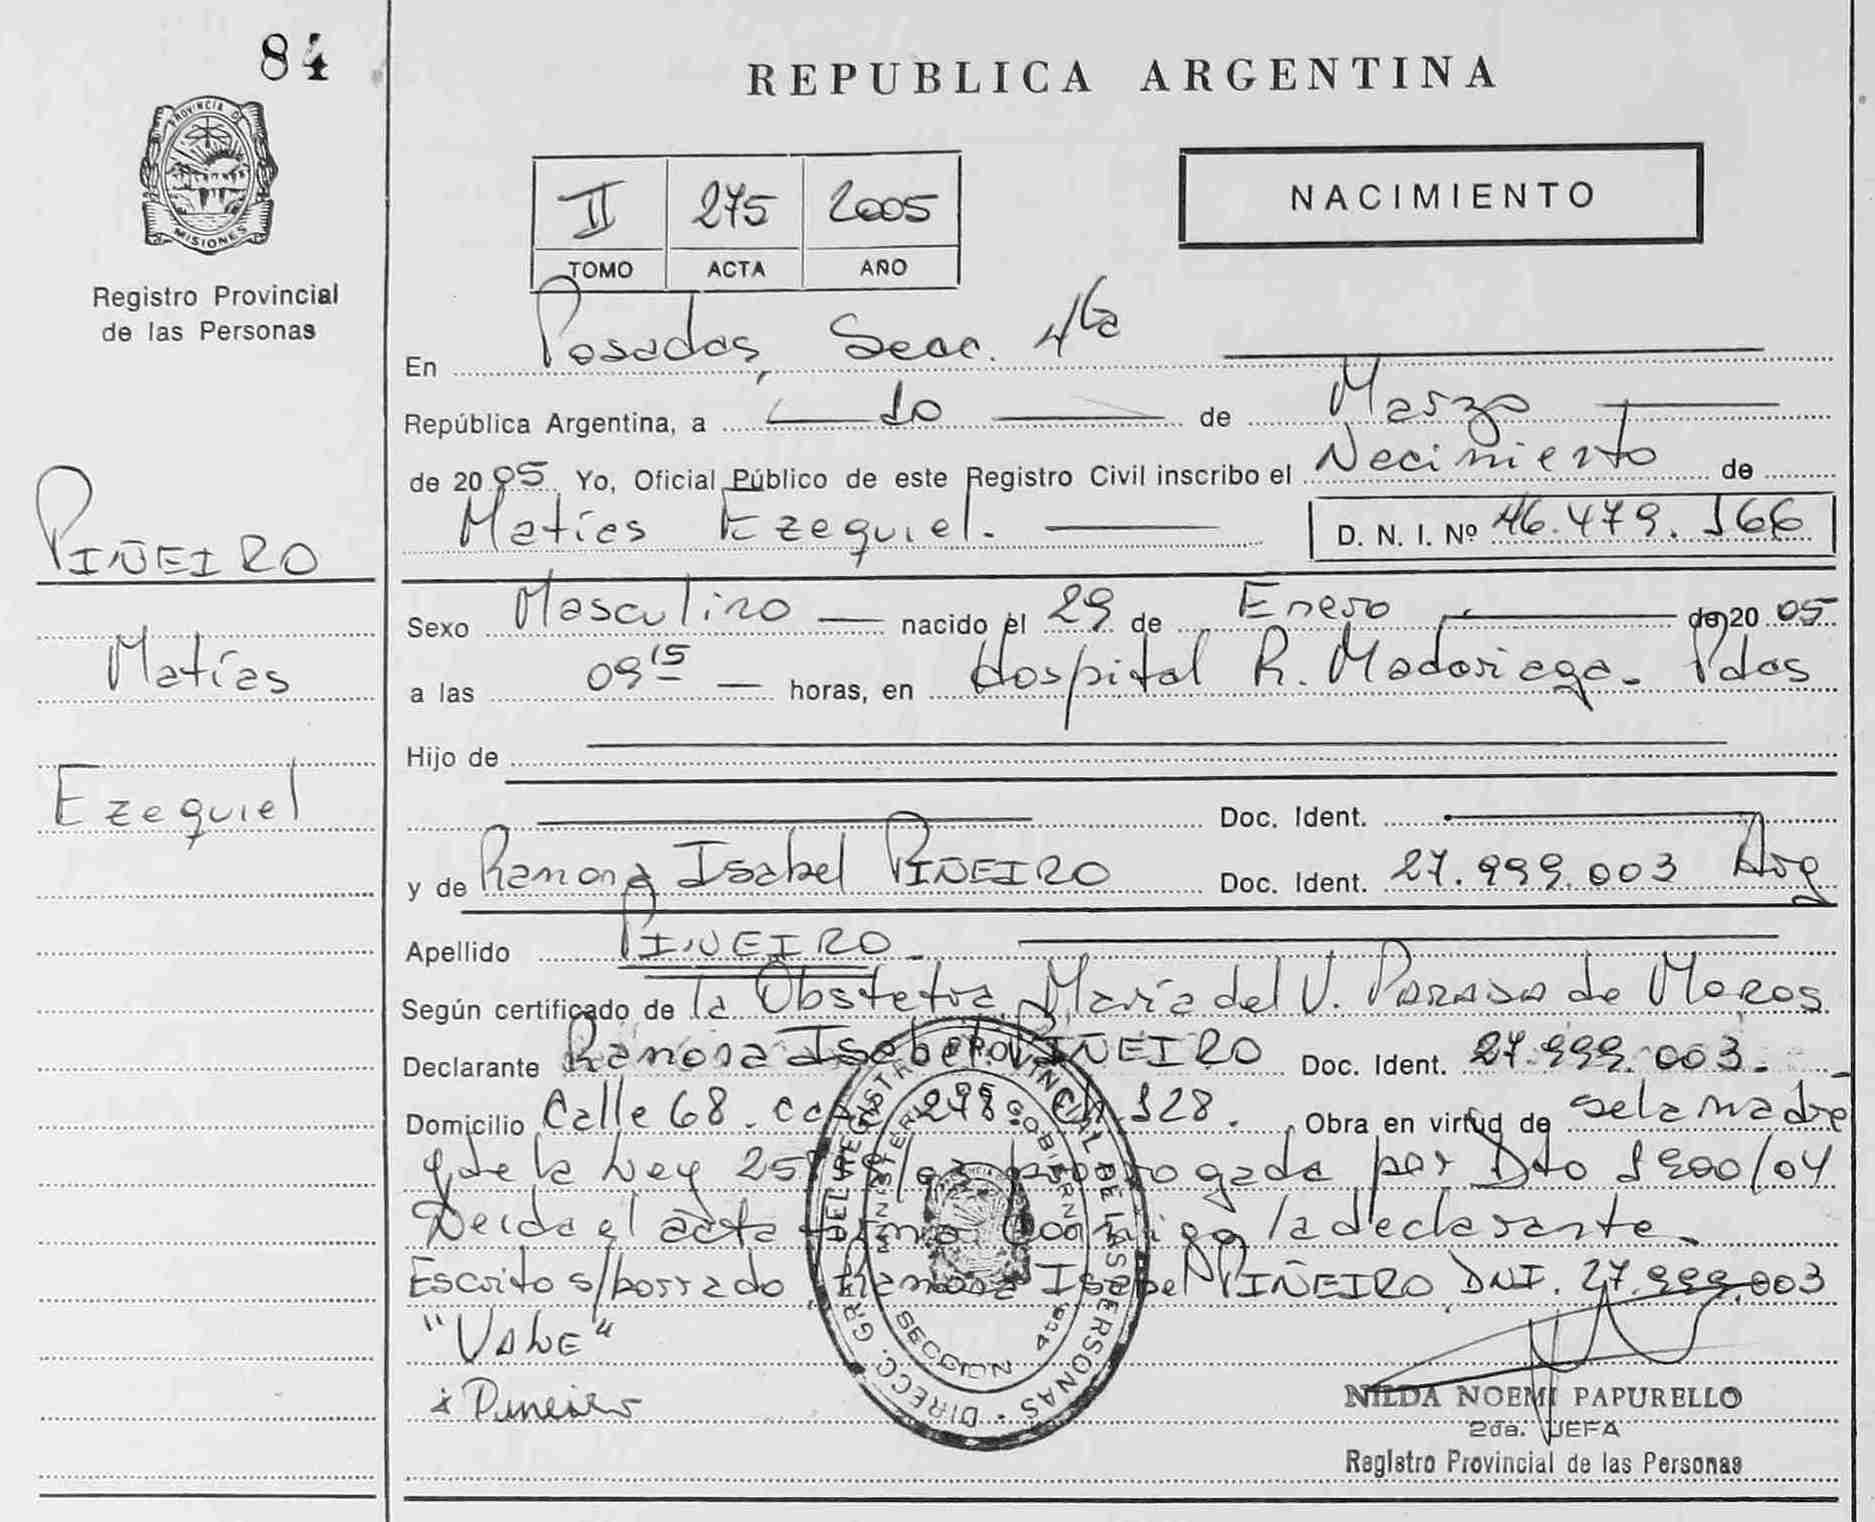 84
PROVINCIA DE
MISIONES
Registro Provincial
de las Personas
REPUBLICA ARGENTINA
NACIMIENTO
II 275 2005
TOMO ACTA AÑO
En Posadas, Secc. 4ta
República Argentina, a 10 de Marzo
de 2005 Yo, Oficial Público de este Registro Civil inscribo el Nacimiento de
Matías Ezequiel. D. N. I. Nº 46.479.166
PIÑEIRO
Matías
Ezequiel
Sexo Masculino nacido el 29 de Enero de 2005
a las 09 15 horas, en Hospital R. Madariaga - Pdas
Hijo de
Doc. Ident.
y de Ramona Isabel PIÑEIRO Doc. Ident. 27.999.003 Arg
Apellido PIÑEIRO
Según certificado de la Obstetra María del V. PARADA de Moros
Declarante Ramona Isabel PIÑEIRO Doc. Ident. 27.999.003.
Domicilio Calle 68. 278. Ch. 128. Obra en virtud de ser la madre
y de la Ley prorrogada por Dto 1900/04
Leida el acta firma conmigo la declarante.
Escrito s/borrado Ramona Isabel PIÑEIRO DNI. 27.999.003
"VALE"
DIRECC. GRAL. DEL REGISTRO PROVINCIAL DE LAS PERSONAS
MINISTERIO DE GOBIERNO
SECCION 4ta.
NILDA NOEMI PAPURELLO
2da. JEFA
Registro Provincial de las Personas